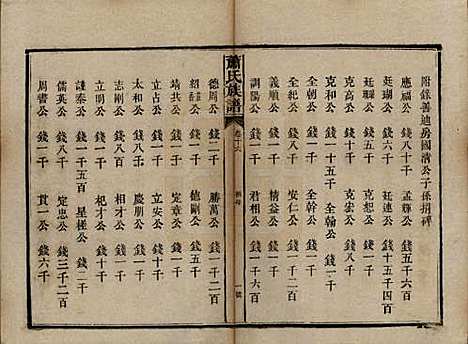 附錄善迪房國清公子孫招碑
應福公 錢六千 孟輝公 錢五千二百
廷瑚公 錢八千 廷連公 錢十五千四百
廷𤩊公 錢一千 克恕公 錢一千
克和公 錢一千 克宏公 錢一千
克貞公 錢十五千 全翰公 錢一千
全朝公 錢一千 全幹公 錢一千
全紀公 錢一千 安仁公 錢一千
義順公 錢一千 精益公 錢二千
訓陽公 錢一千 君相公 錢一千六百
蕭氏族譜
卷十六
一號
德周公 錢二千 勝萬公 錢一千二百
紹巍公 錢一千 德剛公 錢一千
靖共公 錢一千 定章公 錢一千
立占公 錢十千 立安公 錢十千
太和公 錢八千 慶朋公 錢一千
志剛公 錢八百 相才公 錢一千
立明公 錢一千 杞才公 錢一千
謹泰公 錢一千五百 星槎公 錢二千
儒英公 錢一千 定忠公 錢三千二百
周書公 錢一千 貫一公 錢六千